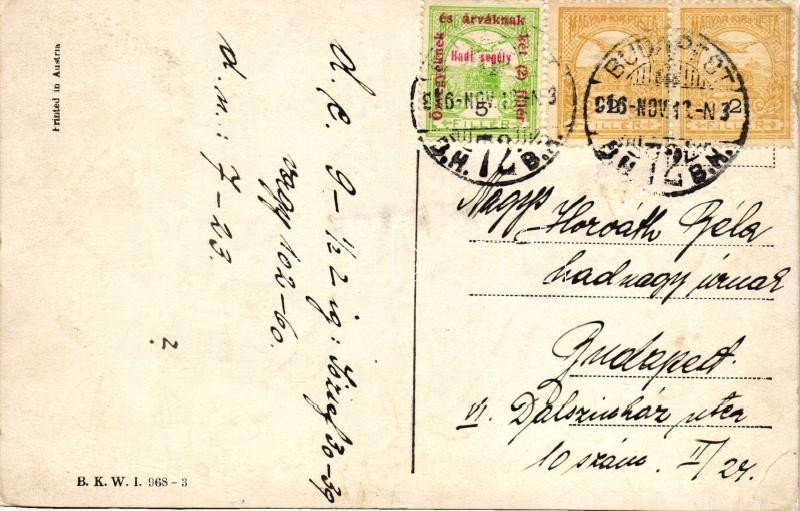 Printed in Austria
özvegyeknek és árváknak két (2) fillér
Hadi segély
5
FILLÉR
MAGYAR KIR. POSTA
2
FILLÉR
MAGYAR KIR. POSTA
2
FILLÉR
916-NOV.12-N3
72
B.H.
BUDAPEST
916-NOV.12-N3
72
B.H.
d. e. 9-½2 ig: József 30-39
vagy 102-60.
d. u.: 7-23.
2.
Nagys
Horváth Béla
hadnagy úrnak
Budapest.
VI. Dalszinház utca
10 szám. II/24.
B. K. W. I. 968-3